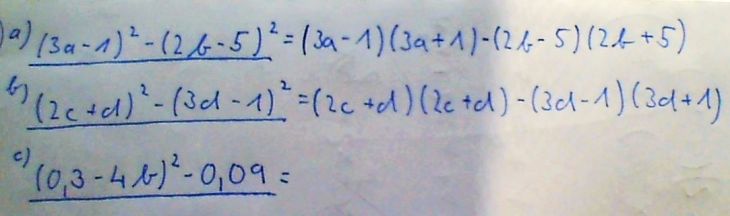 a) (3a-1)² - (2b-5)² = (3a-1)(3a+1)-(2b-5)(2b+5)
b) (2c+d)² - (3d-1)² = (2c+d)(2c+d) - (3d-1)(3d+1)
c) (0,3-4b)² - 0,09 =